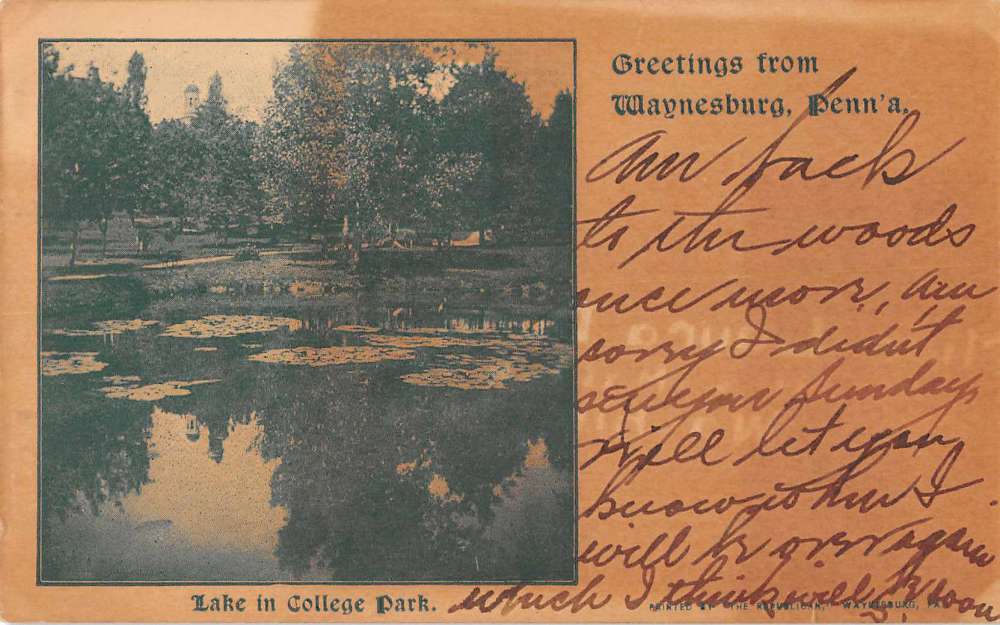 Greetings from
Waynesburg, Penn'a.
Am back
to the woods
once more, am
sorry I didn't
see you Sunday
will let you
know when I
will be over again
which I think will be soon
Lake in College Park.
PRINTED BY "THE REPUBLICAN," WAYNESBURG, PA.